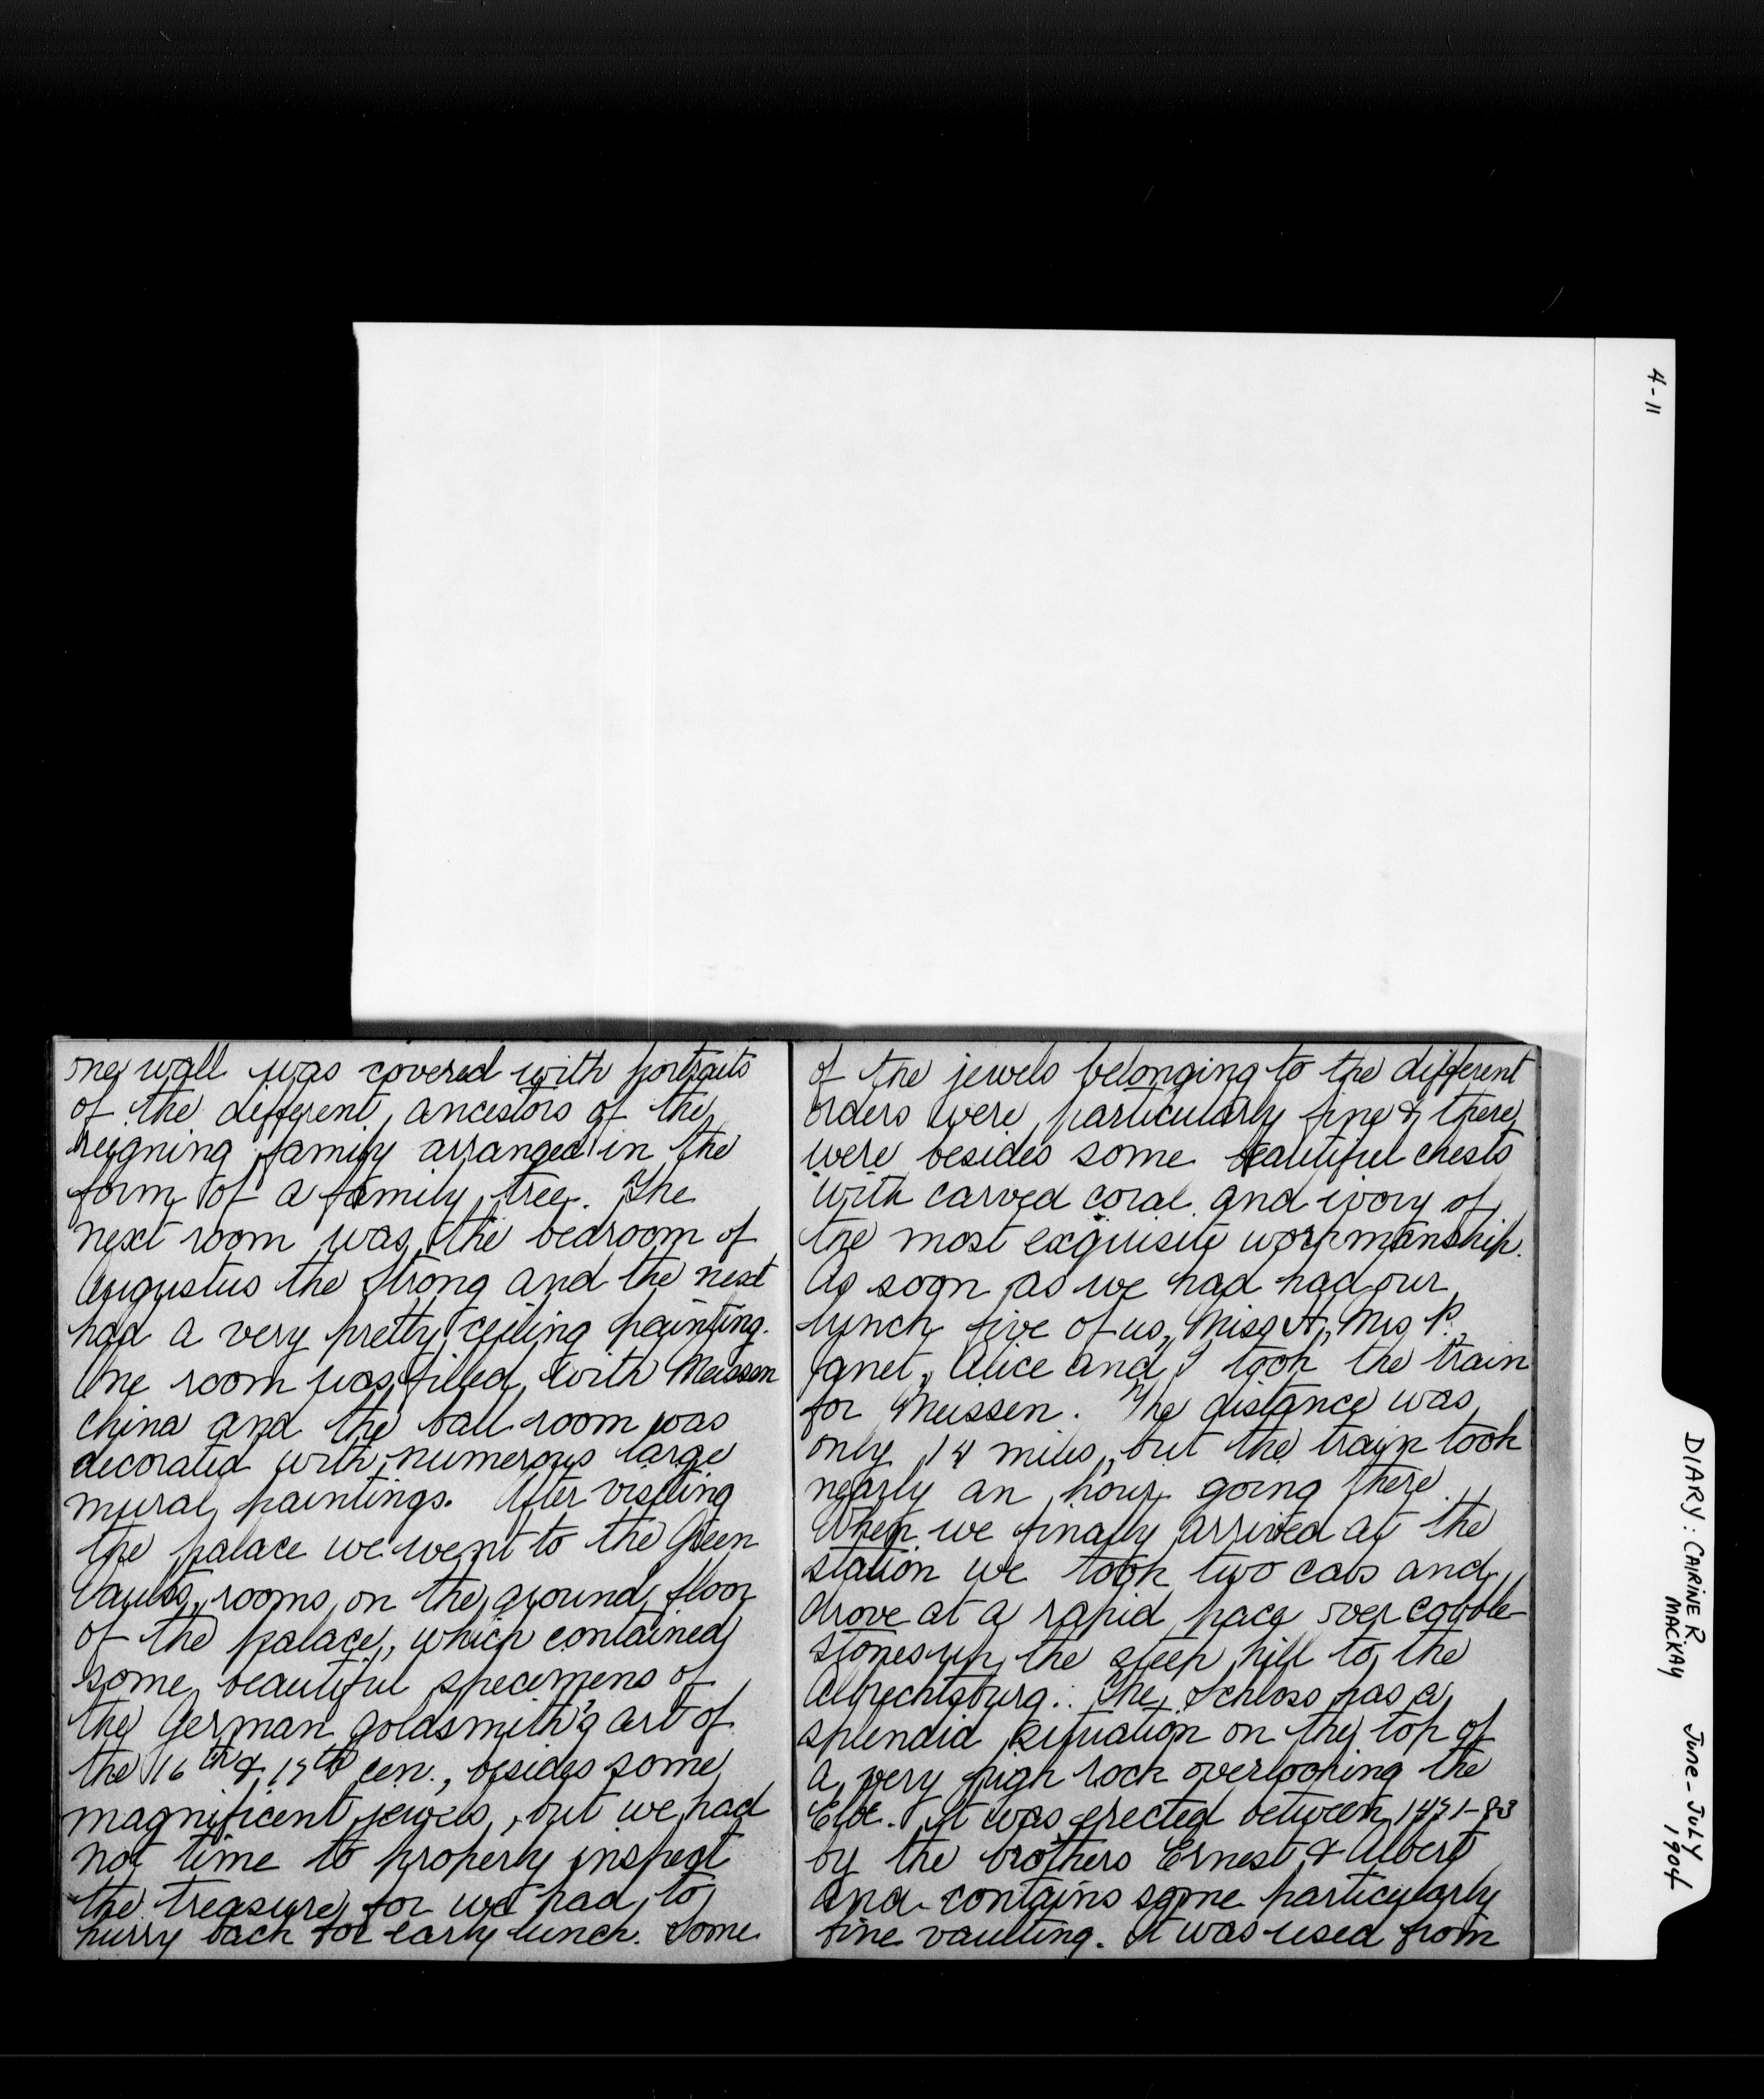 one wall was covered with portraits
of the different ancestors of the
reigning family arranged in the
form of a family tree. The
next room was the bedroom of
Augustus the Strong and the next
had a very pretty ceiling painting.
One room was filled with Meissen
china and the ball room was
decorated with numerous large
mural paintings. After visiting
the palace we went to the Green
Vaults, rooms on the ground floor
of the palace, which contained
some beautiful specimens of
the German goldsmith's art of
the 16th & 17th cen., besides some
magnificent jewels, but we had
not time to properly inspect
the treasure for we had to
hurry back for early lunch. Some
of the jewels belonging to the different
orders were particularly fine & there
were besides some beautiful chests
with carved coral and ivory of
the most exquisite workmanship.
As soon as we had had our
lunch five of us, Miss A, Mrs P.
Janet, Alice and I took the train
for Meissen. The distance was
only 14 miles, but the train took
nearly an hour going there.
When we finally arrived at the
station we took two cabs and
drove at a rapid pace over cobble-
stones up the steep hill to the
Albrechtsburg. The Schloss has a
splendid situation on the top of
a very high rock overlooking the
Elbe. It was erected between 1471-83
by the brothers Ernest & Albert
and contains some particularly
fine vaulting. It was used from
4-11
DIARY: CAIRINE R. MACKAY
June-July 1904